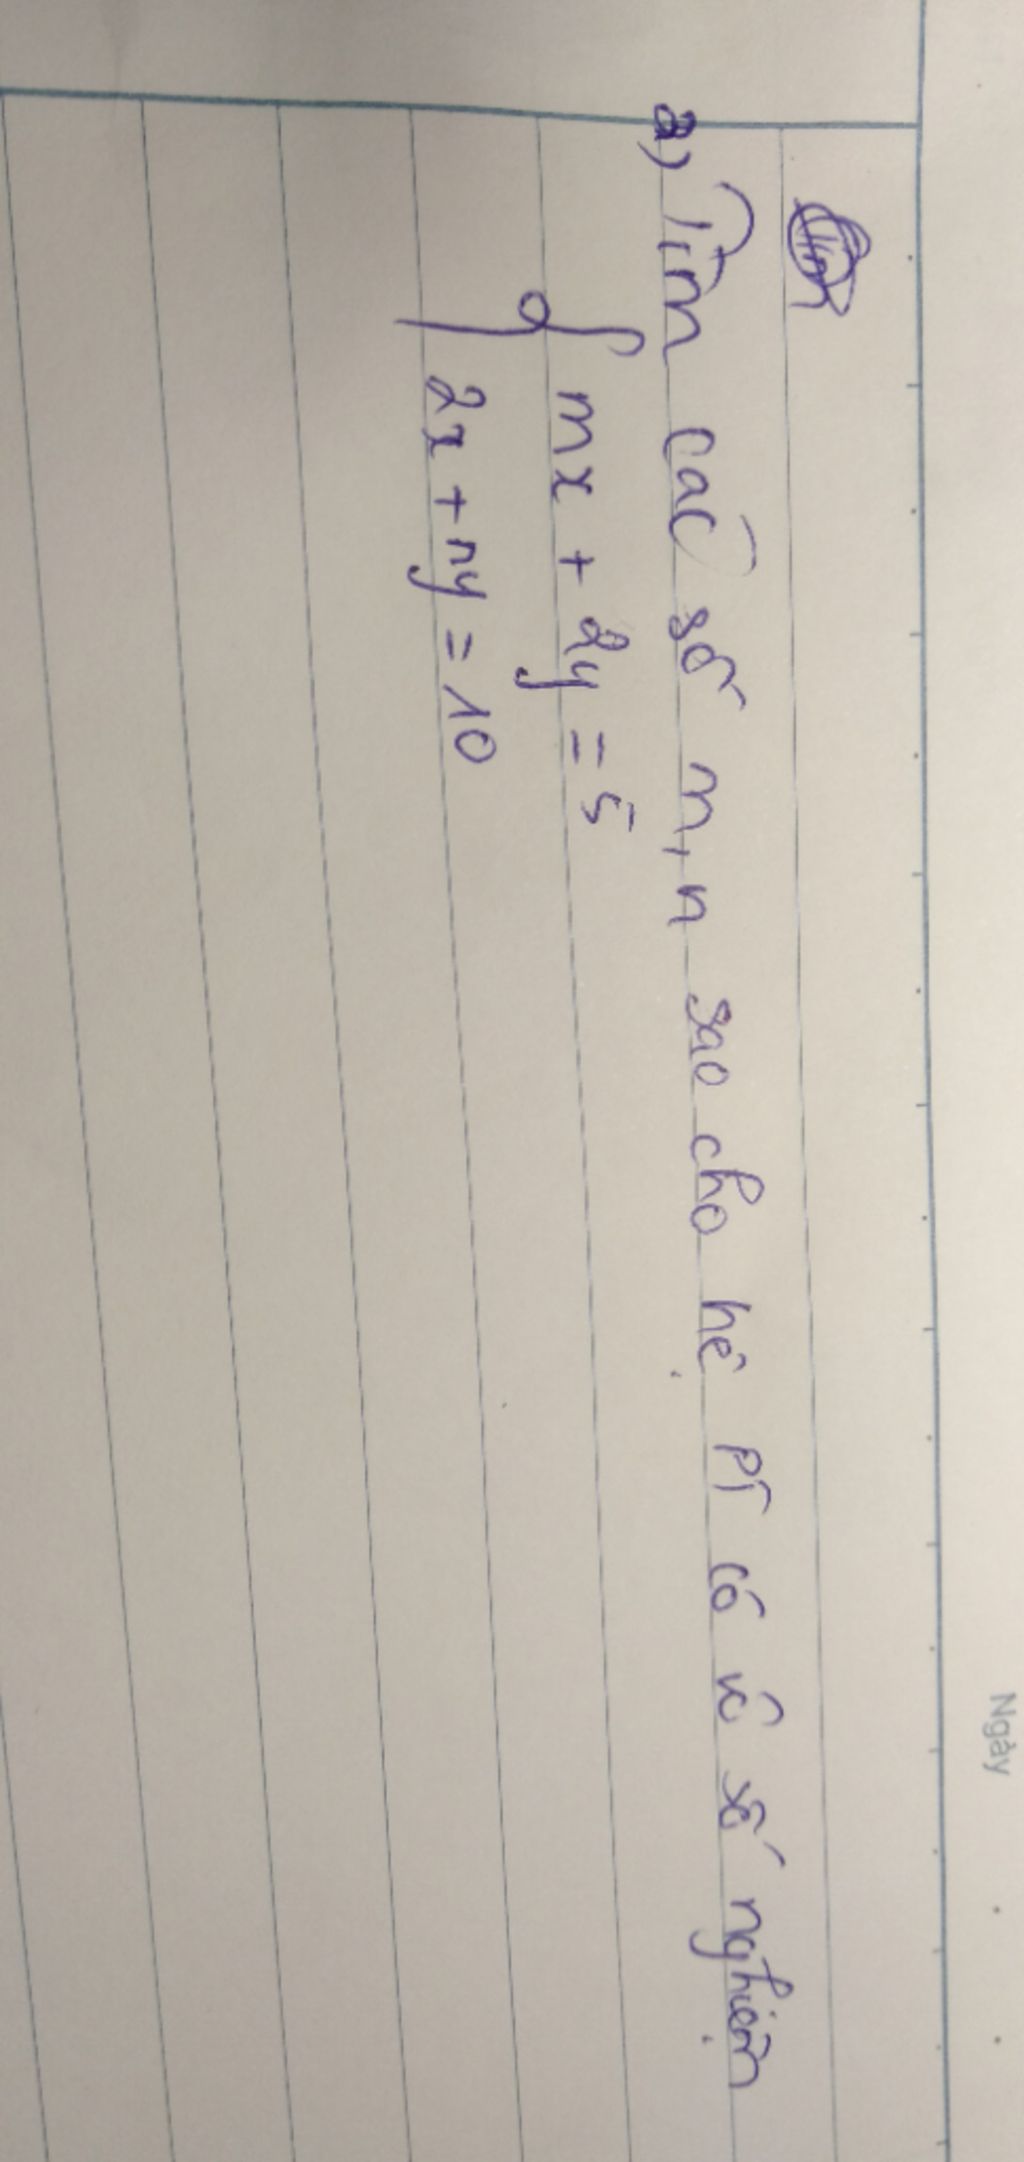 Ngày
a) Tìm các số m, n sao cho hệ PT có vô số nghiệm
mx + 2y = 5
2x + ny = 10